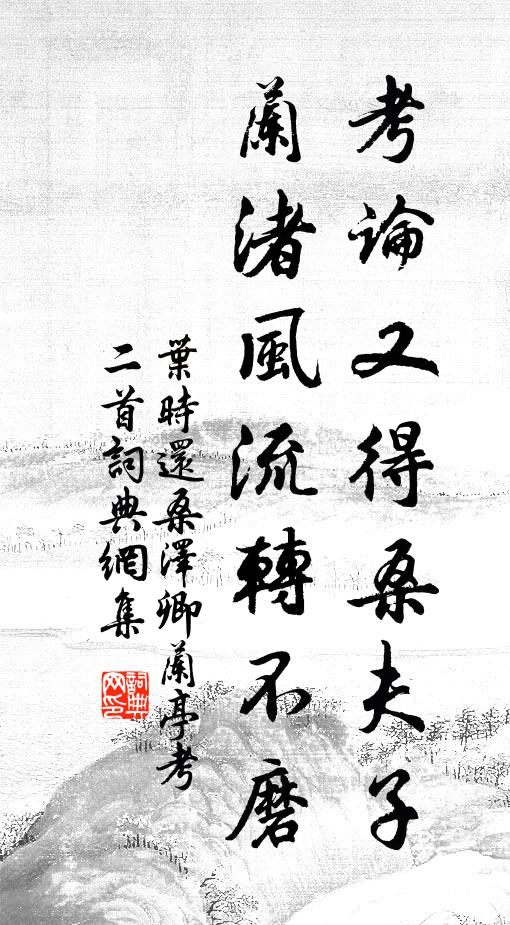 考論又得桑夫子
蘭渚風流轉不磨
葉時還桑澤卿蘭亭考
二首詞典網集
詞典網印